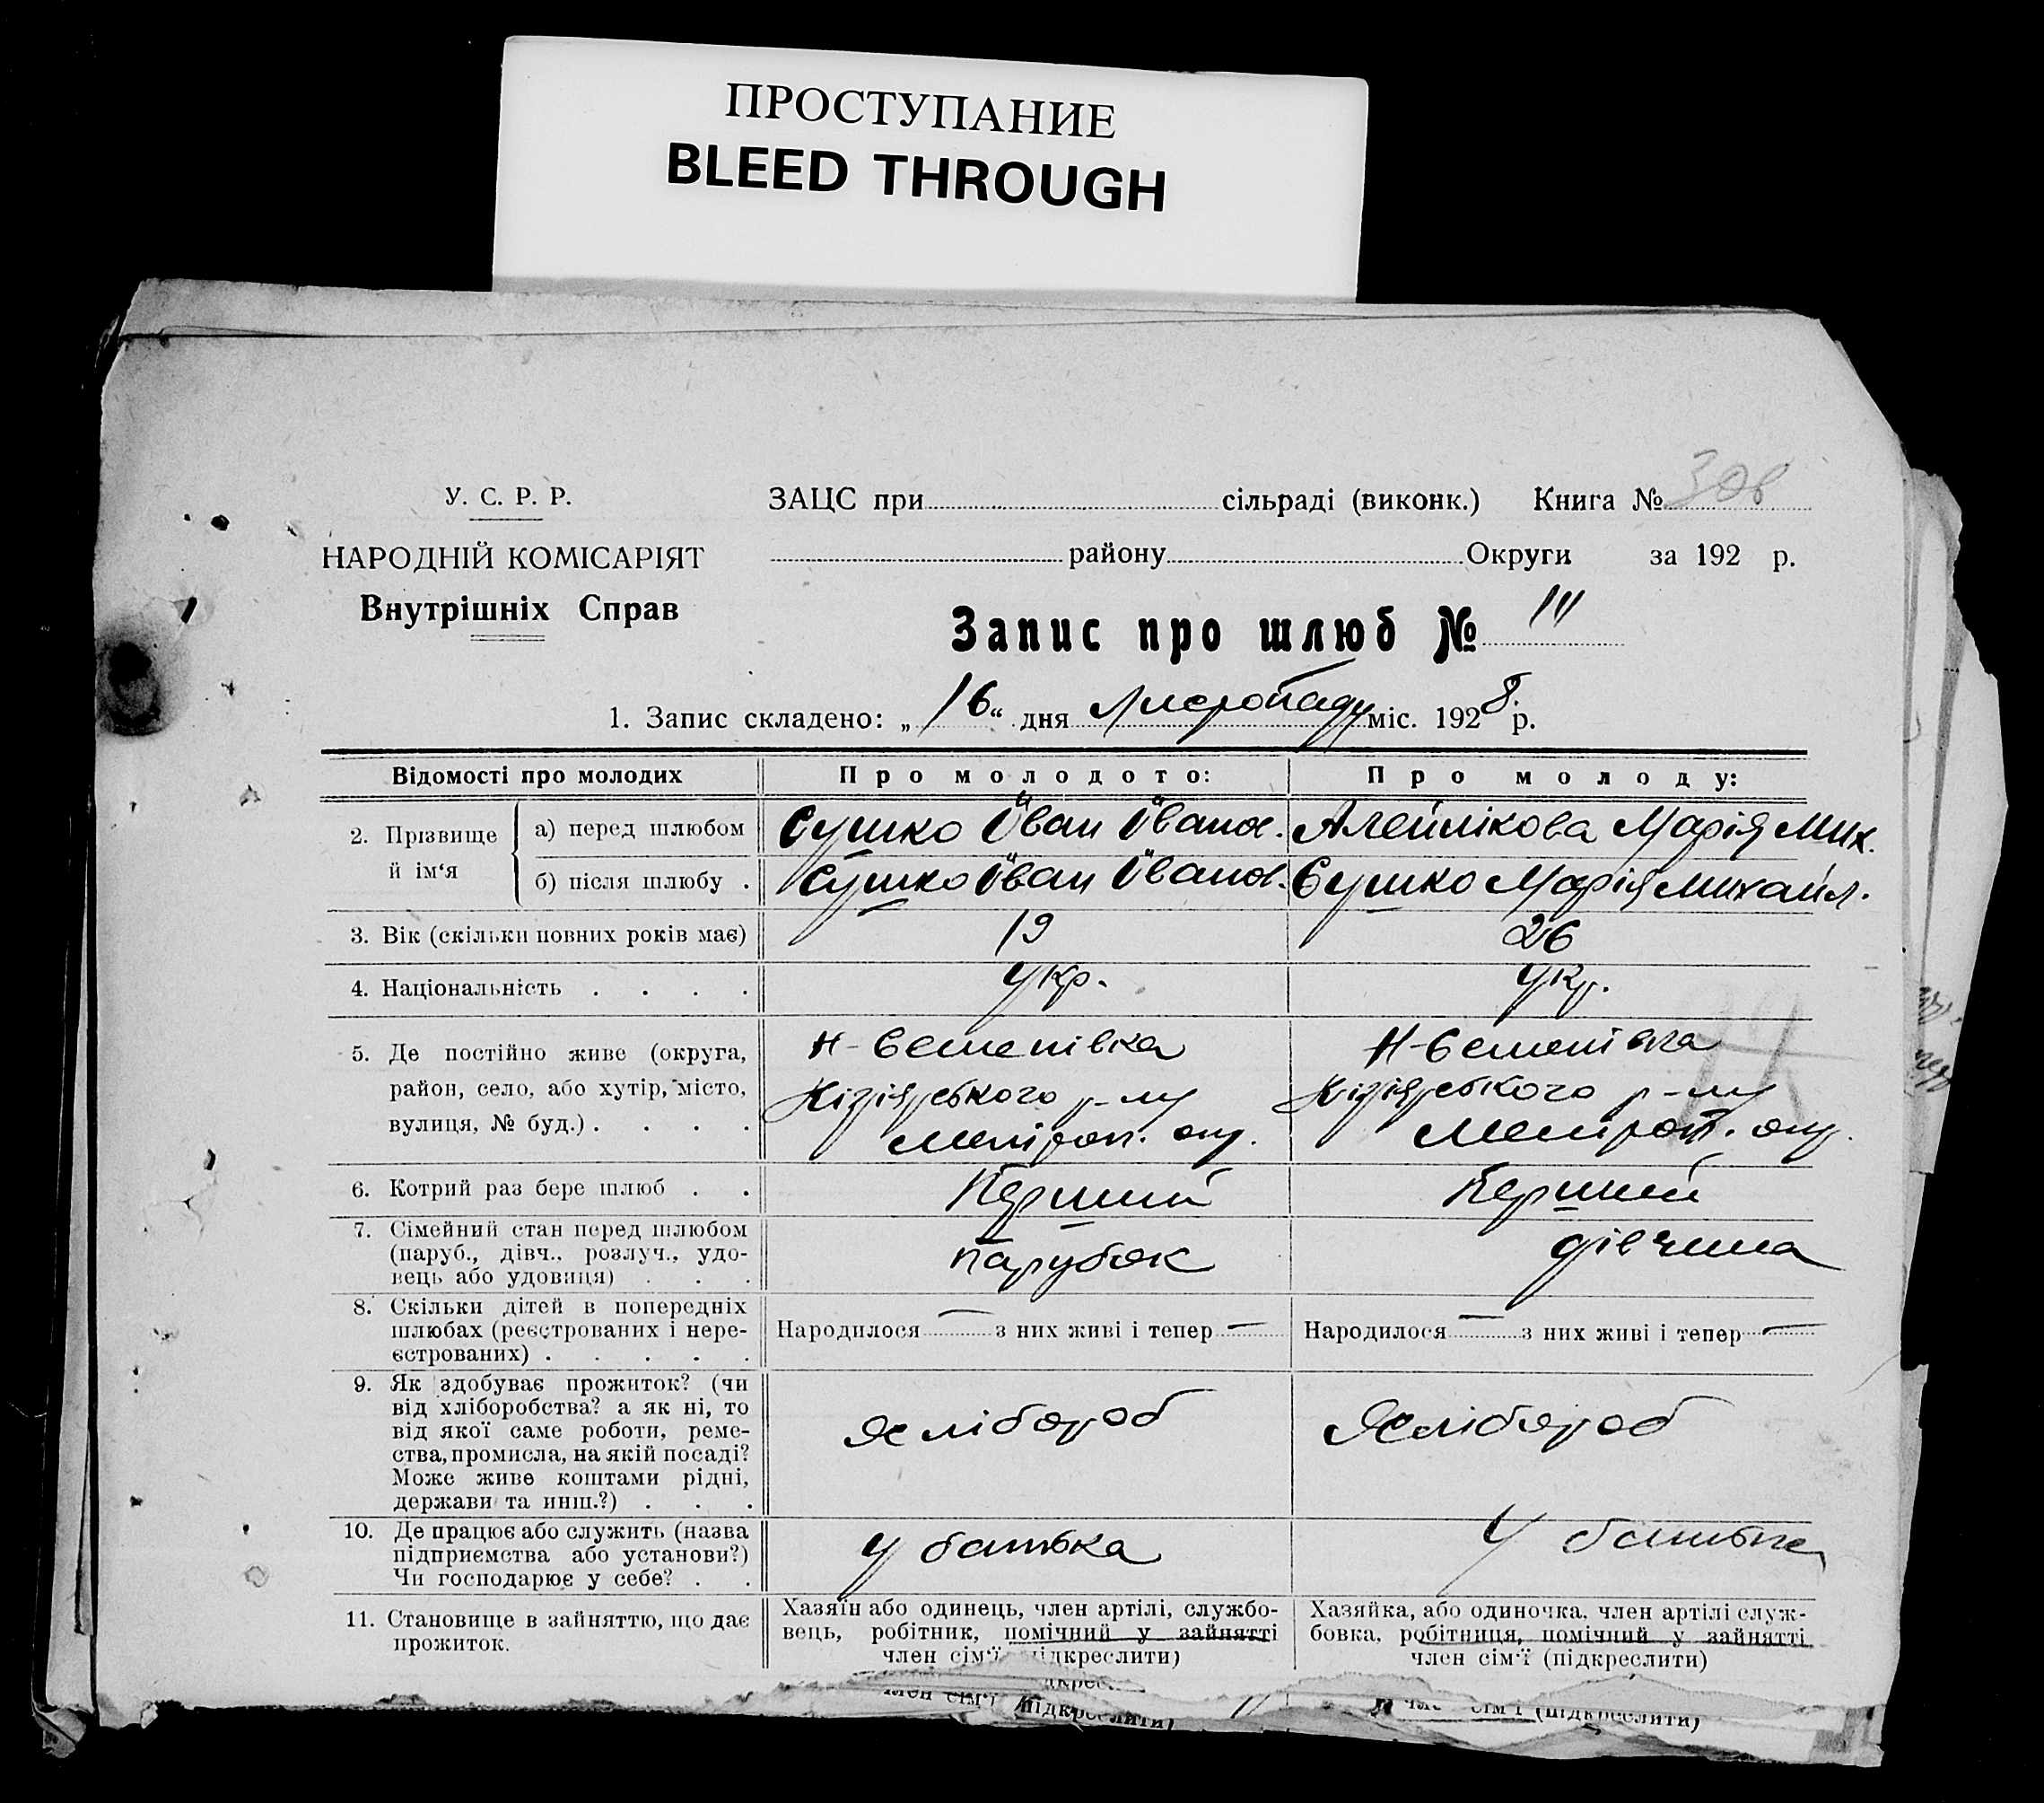 ПРОСТУПАНИЕ
BLEED THROUGH
У. С. Р. Р.
НАРОДНІЙ КОМІСАРІЯТ
Внутрішніх Справ
ЗАЦС при сільраді (виконк.) Книга №
району Округи за 192 р.
Запис про шлюб №
1. Запис складено: „16“ дня листопаду міс. 1928 р.
Відомості про молодих
Про молодого:
Про молоду:
2. Прізвище й ім‘я
а) перед шлюбом
Сушко Іван Іванов.
Алейлікова Марія Мих.
б) після шлюбу .
Сушко Іван Іванов.
Сушко Марія Михайл.
3. Вік (скільки повних років має)
19
26
4. Національність . . . .
укр.
укр.
5. Де постійно живе (округа,
район, село, або хутір, місто,
вулиця, № буд.) . . . .
Н-Естепівка
Кізіярського р-ну
Меліроп. окр.
Кізіярського р-ну
Меліроп. окр.
6. Котрий раз бере шлюб . .
Перший
Перший
7. Сімейний стан перед шлюбом
(паруб., дівч., розлуч., удо-
вець або удовиця) . . .
парубок
дівчина
8. Скільки дітей в попередніх
шлюбах (реєстрованих і нере-
єстрованих) . . . . .
Народилося — з них живі і тепер —
Народилося — з них живі і тепер —
9. Як здобуває прожиток? (чи
від хліборобства? а як ні, то
від якої саме роботи, реме-
ства, промисла, на якій посаді?
Може живе коштами рідні,
держави та инш.?) . . .
хлібороб
хлібороб
10. Де працює або служить (назва
підприємства або установи?)
Чи господарює у себе? . .
у батька
у батька
11. Становище в зайняттю, що дає
прожиток.
Хазяїн або одинець, член артілі, службо-
вець, робітник, помічний у зайнятті
член сім‘ї підкреслити)
Хазяйка, або одиночка, член артілі служ-
бовка, робітниця, помічний у зайнятті
член сім‘ї (підкреслити)
член сім‘ї підкреслити)
сім‘ї (підкреслити)